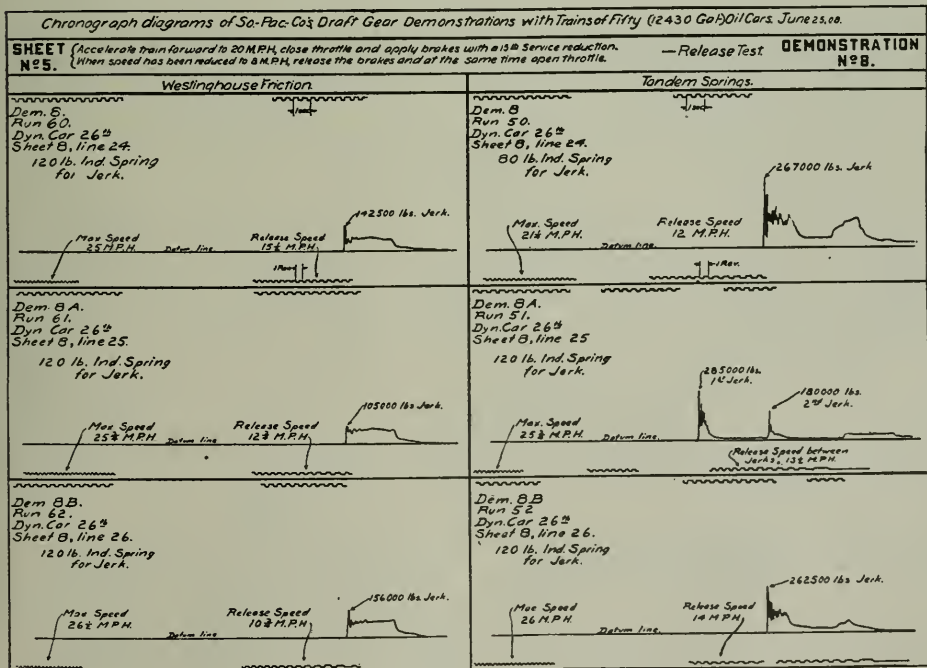 Chronograph diagrams of So-Pac-Co's Draft Gear Demonstrations with Trains of Fifty (12430 Gal.) Oil Cars. June 25, 08.
SHEET Nº5.
Accelerate train forward to 20 M.P.H, close throttle and apply brakes with a 15 lb Service reduction.
When speed has been reduced to 8 M.P.H, release the brakes and at the same time open throttle.
—Release Test
DEMONSTRATION Nº8.
Westinghouse Friction.
1 sec
Dem. 8.
Run 60.
Dyn. Car 26th
Sheet 8, line 24.
120 lb. Ind. Spring
for Jerk.
142500 lbs. Jerk.
Max. Speed
25 M.P.H.
Datum line
Release Speed
15½ M.P.H.
1 Rev.
Dem. 8A.
Run 61.
Dyn Car 26th
Sheet 8, line 25.
120 lb. Ind. Spring
for Jerk.
105000 lbs Jerk.
Max. Speed
M.P.H.
Datum line
Release Speed
M.P.H.
Dem 8B.
Run 62.
Dyn. Car 26th
Sheet 8, line 26.
120 lb. Ind. Spring
for Jerk.
156000 lbs Jerk.
Max Speed
26½ M.P.H
Datum line
Release Speed
M.P.H
Tandem Springs.
1 sec
Dem. 8
Run 50.
Dyn. Car 26th
Sheet 8, line 24.
80 lb. Ind. Spring
for Jerk.
267000 lbs. Jerk
Max. Speed
M.P.H.
Datum line
Release Speed
12 M.P.H.
1 Rev.
Dem. 8A.
Run 51.
Dyn. Car 26th
Sheet 8, line 25
120 lb. Ind. Spring
for Jerk.
285000 lbs.
1st Jerk.
180000 lbs.
2nd Jerk.
Max. Speed
M.P.H.
Datum line
Release Speed between
Jerks, 13½ M.P.H.
Dem. 8B
Run 52
Dyn. Car 26th
Sheet 8, line 26.
120 lb. Ind. Spring
for Jerk.
262500 lbs Jerk.
Max Speed
26 M.P.H.
Datum line
Release Speed
14 M.P.H.